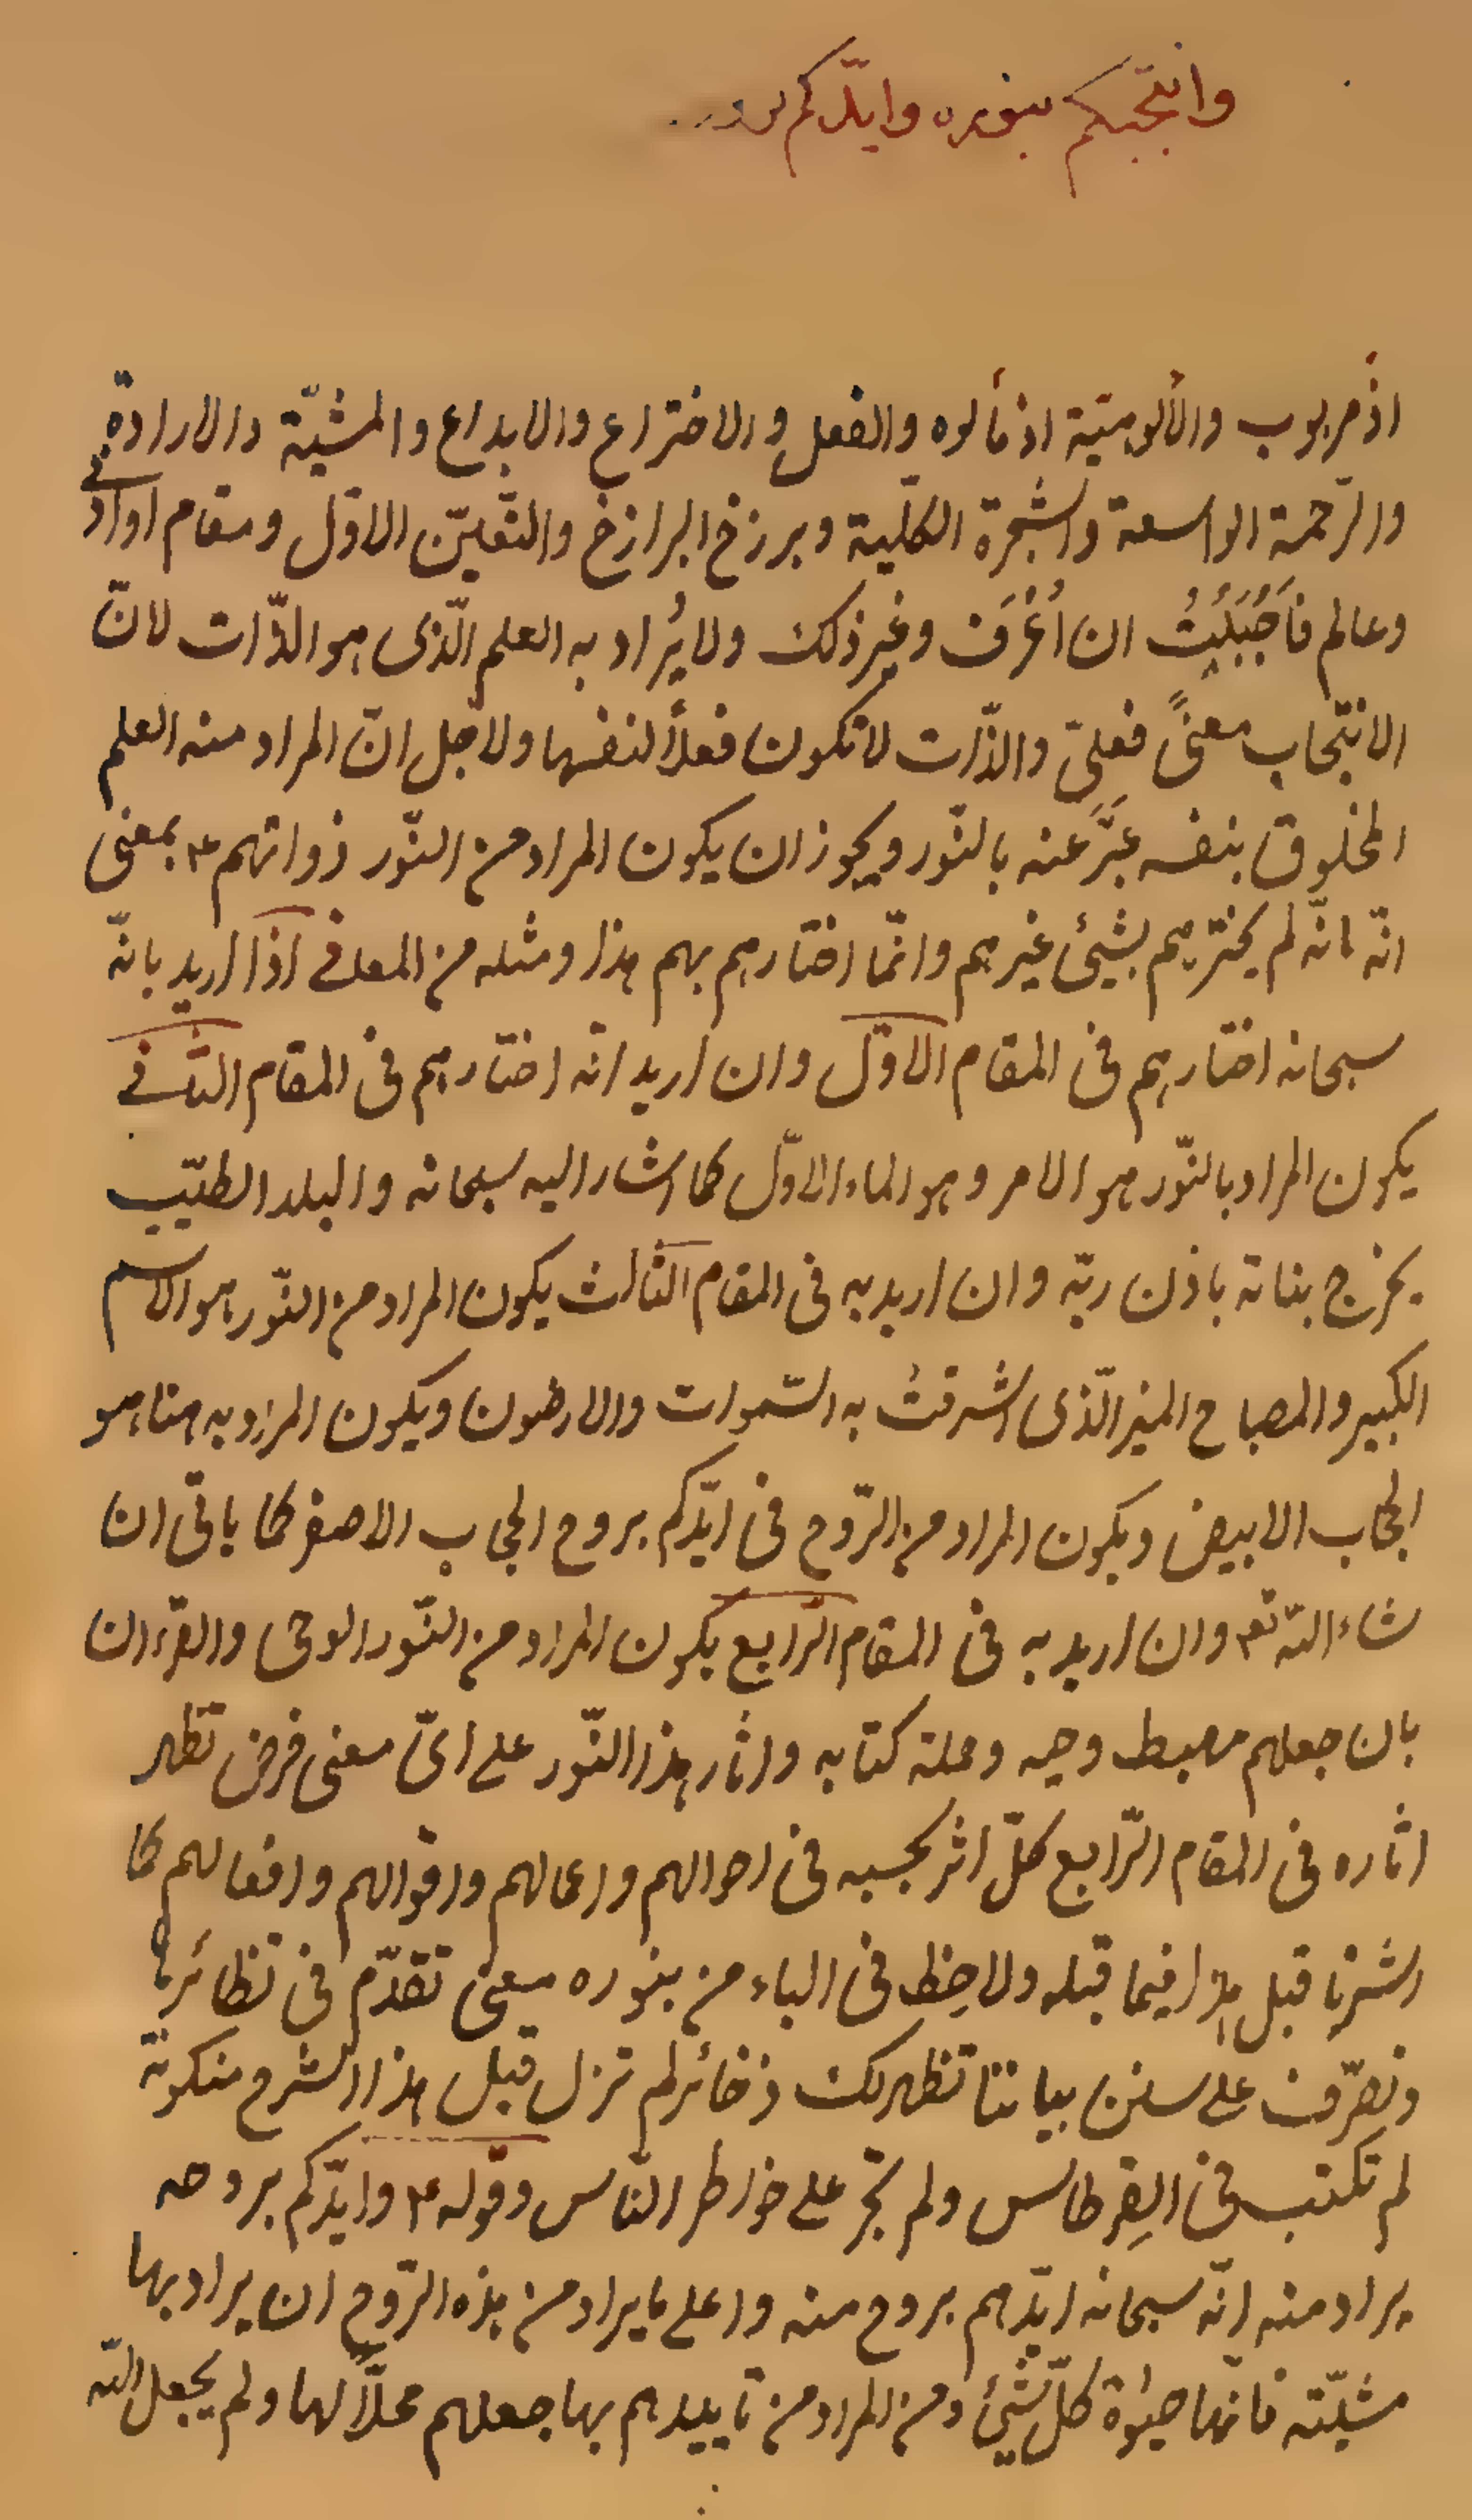 وانتجبكم بنوره وايّدكم
اذ مربوب والألوهيّة اذ مألوه والفعل والاختراع والابداع والمشيّة والارادة
والرّحمة الواسعة والشجرة الكليّة وبرزخ البرازخ والتّعيّن الاوّل ومقام او ادنى
وعالم فاحببتُ ان اُعْرَف وغير ذلك ولا يُراد به العلم الّذى هو الذّات لانّ
الانتجاب معنىً فعلىّ والذّات لا تكون فعلاً لنفسها ولاجل انّ المراد منه العلم
المخلوق بنفسه عبَّر عنه بالنّور ويجوز ان يكون المراد من النّور ذواتهم ع بمعنى
انّه لم يخترهم بشيئ غيرهم وانّما اختارهم بهم هذا ومثله من المعانى اذا اريد بانّه
سبحانه اختارهم فى المقام الاوّل وان اريد انّه اختارهم فى المقام الثّانى
يكون المراد بالنّور هو الامر وهو الماء الاوّل كما اشار اليه سبحانه والبلد الطيّب
يخرج بناته باذن ربّه وان اريد به فى المقام الثّالث يكون المراد من النّور هو الاسم
الكبير والمصباح المنير الّذى اشرقتْ به السّموات والارضون ويكون المراد به هنا هو
الحجاب الابيض ويكون المراد من الرّوح فى ايّدكم بروح الحجاب الاصفر كما يأتى ان
شاء اللّه تع وان اريد به فى المقام الرّابع يكون المراد من النّور الوحى والقرءان
بان جعلهم مهبط وحيه وحملة كتابه واثار هذا النّور على اىّ معنى فرض تظهر
اثاره فى المقام الرّابع كلّ اثر بحسبه فى احوالهم واعمالهم واقوالهم وافعالهم كما
اشرنا قبل هذا فيما قبله ولاحِظ فى الباء من بنوره معنى تقدّم فى نظائرها
وتصرّف على سنن بياننا تظهر لك ذخائر لم تزل قبل هذا الشرح منكوتة
لم تكتب فى القِرطاس ولم تجر على خواطر النّاس وقوله ع وايّدكم بروحه
يراد منه انّه سبحانه ايّدهم بروح منه واعلى ما يراد من هذه الرّوح ان يراد بها
مشيّته فانّها حيٰوة كلّ شيئ ومن المراد من تاييدهم بها جعلهم محلاًّ لها ولم يجعل اللّه